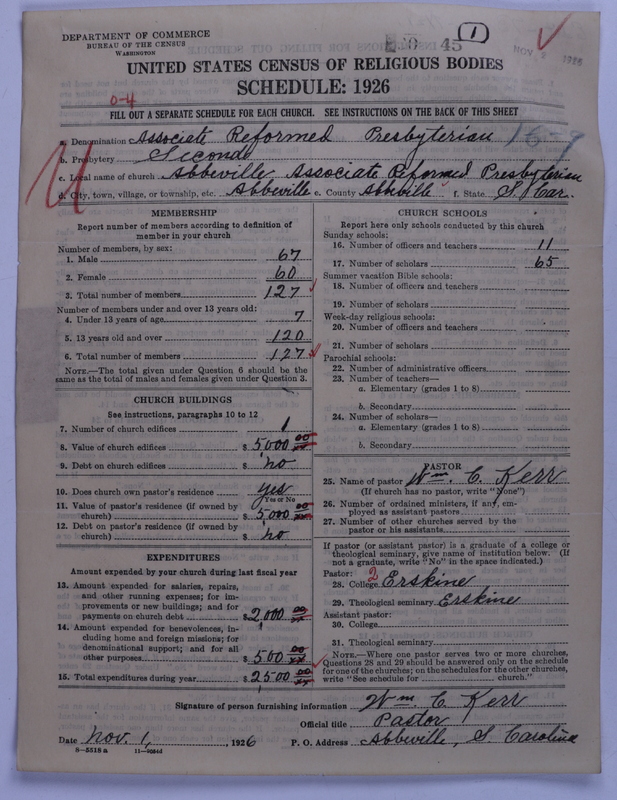 DEPARTMENT OF COMMERCE
BUREAU OF THE CENSUS
WASHINGTON
45
1
NOV 1926
UNITED STATES CENSUS OF RELIGIOUS BODIES
SCHEDULE: 1926
0-4
FILL OUT A SEPARATE SCHEDULE FOR EACH CHURCH. SEE INSTRUCTIONS ON THE BACK OF THIS SHEET
a. Denomination Associate Reformed Presbyterian 16-9
b. Presbytery Second
c. Local name of church Abbeville Associate Reformed Presbyterian
d. City, town, village, or township, etc. Abbeville e. County Abbeville f. State S. Car.
MEMBERSHIP
Report number of members according to definition of
member in your church
Number of members, by sex:
1. Male 67
2. Female 60
3. Total number of members 127
Number of members under and over 13 years old:
4. Under 13 years of age 7
5. 13 years old and over 120
6. Total number of members 127
NOTE.—The total given under Question 6 should be the
same as the total of males and females given under Question 3.
CHURCH BUILDINGS
See instructions, paragraphs 10 to 12
7. Number of church edifices 1
8. Value of church edifices $ 5000 00
9. Debt on church edifices $ no
10. Does church own pastor's residence yes
Yes or No
11. Value of pastor's residence (if owned by
church) $ 5,000 00
12. Debt on pastor's residence (if owned by
church) $ no
EXPENDITURES
Amount expended by your church during last fiscal year
13. Amount expended for salaries, repairs,
and other running expenses; for im-
provements or new buildings; and for
payments on church debt $ 2,000 00
14. Amount expended for benevolences, in-
cluding home and foreign missions; for
denominational support; and for all
other purposes $ 500 00
15. Total expenditures during year $ 2500 00
CHURCH SCHOOLS
Report here only schools conducted by this church
Sunday schools:
16. Number of officers and teachers 11
17. Number of scholars 65
Summer vacation Bible schools:
18. Number of officers and teachers
19. Number of scholars
Week-day religious schools:
20. Number of officers and teachers
21. Number of scholars
Parochial schools:
22. Number of administrative officers
23. Number of teachers—
a. Elementary (grades 1 to 8)
b. Secondary
24. Number of scholars—
a. Elementary (grades 1 to 8)
b. Secondary
PASTOR
25. Name of pastor Wm. C. Kerr
(If church has no pastor, write "None")
26. Number of ordained ministers, if any, em-
ployed as assistant pastors
27. Number of other churches served by the
pastor or his assistants
If pastor (or assistant pastor) is a graduate of a college or
theological seminary, give name of institution below. (If
not a graduate, write "No" in the space indicated.)
Pastor: 2
28. College Erskine
29. Theological seminary Erskine
Assistant pastor:
30. College
31. Theological seminary
NOTE.—Where one pastor serves two or more churches,
Questions 28 and 29 should be answered only on the schedule
for one of the churches; on the schedules for the other churches,
write "See schedule for church."
Signature of person furnishing information Wm. C. Kerr
Official title Pastor
Date Nov. 1, 1926 P. O. Address Abbeville, S Carolina
8—5518 a 11—9034d